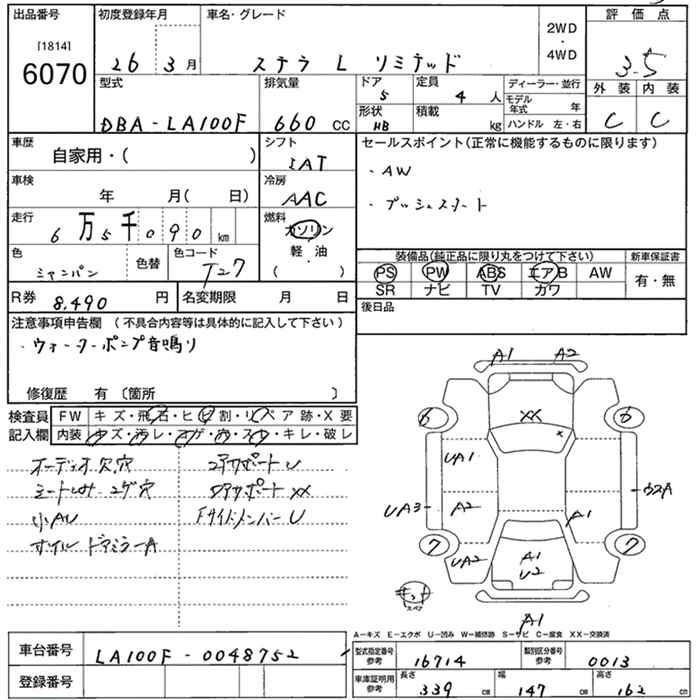 出品番号 初度登録年月 車名・グレード 2WD・4WD 評価点
[1814]
6070 26 3月 ステラ L リミテッド 3.5
型式 排気量 ドア 5 定員 4人 ディーラー・並行 外装 内装
DBA-LA100F 660 CC 形状 HB 積載 kg モデル年式 年 C C
ハンドル 左・右
車歴 シフト セールスポイント(正常に機能するものに限ります)
自家用・( ) IAT ・AW
車検 年 月( 日) 冷房 AAC ・プッシュスタート
走行 6万5千090km 燃料 ガソリン・軽油
( ・ )
色 シャンパン 色替 色コード T27
装備品(純品に限り丸をつけて下さい) 新車保証書
PS PW ABS エアB AW 有・無
SR ナビ TV カワ
R券 8,490円 名変期限 月 日
後日品
注意事項申告欄(不具合内容等は具体的に記入して下さい)
・ウォーターポンプ音鳴り
修復歴 有〔箇所 〕
検査員 FW キズ・飛石・ヒビ割・リペア跡・X要
記入欄 内装 キズ・汚レ・コゲ・穴・スレ・キレ・破レ
オーディオ欠穴 コアサポートU
シート コゲ穴 コアサポートXX
小AU FサイドメンバーU
ホイル ドアミラーA
A1 A2
XX
6 6
x
UA1
UA3 A2 A1
7 7
UA2 A1
U2
キット
スペア
A1
A-キズ E-エクボ U-凹み W-補修跡 S-サビ C-腐食 XX-交換済
車台番号 LA100F-0048752
登録番号
型式指定番号 参考 16714 類別区分番号 参考 0013
車庫証明用 参考 長さ 339cm 幅 147cm 高さ 162cm